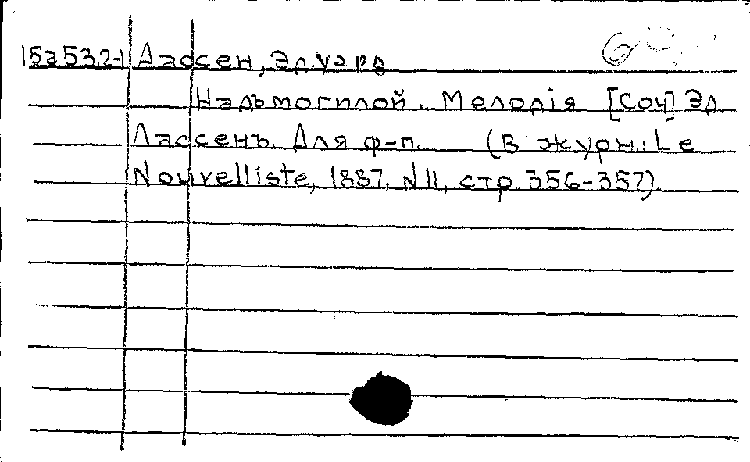 15а532-1 Лассен, Эдуард
Надъ могилой. Мелодія [Соч] Эд.
Лассенъ. Для ф-п. (В журн.: Le
Nouvelliste, 1887, N11, стр. 356-357).